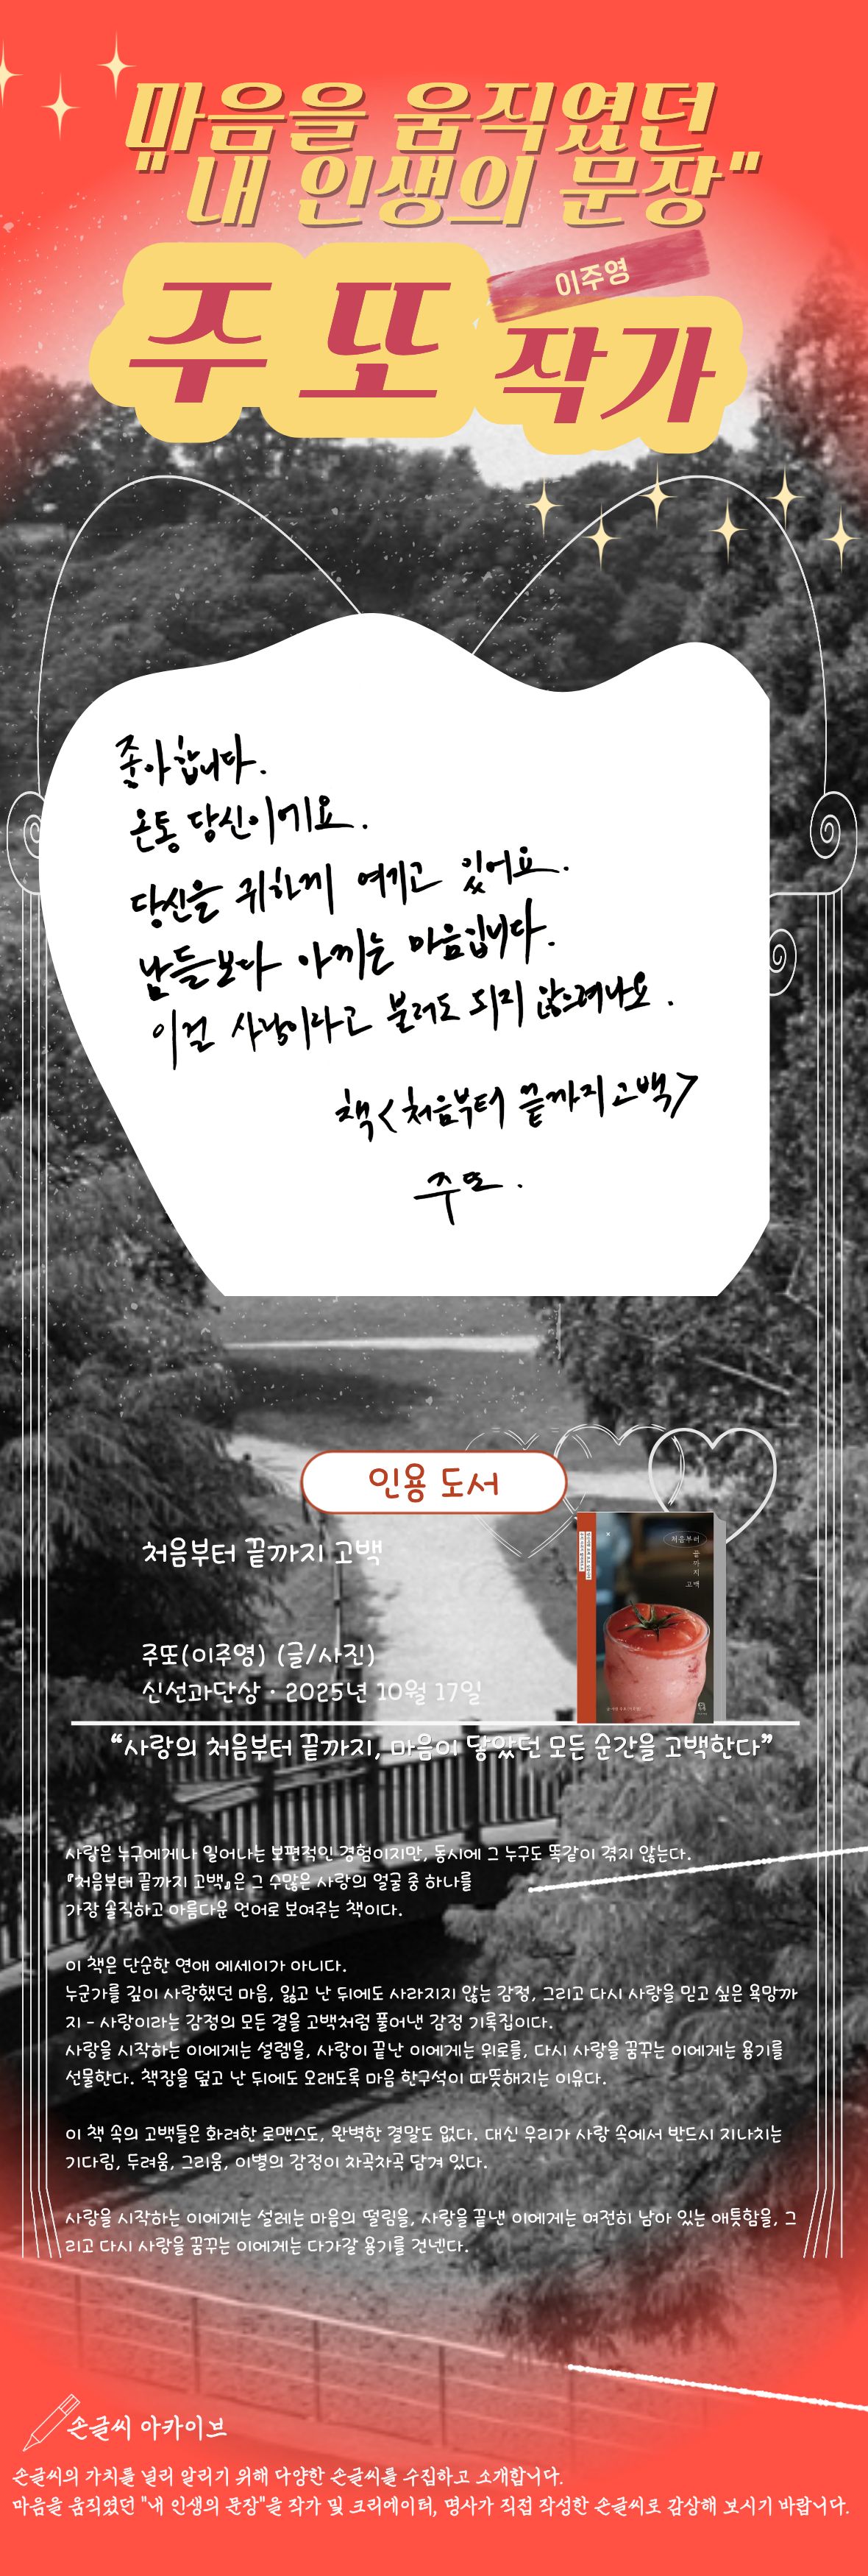 마음을 움직였던
"내 인생의 문장"
이주영
주또 작가
좋아합니다.
온통 당신이에요.
당신을 귀하게 여기고 있어요.
남들보다 아끼는 마음입니다.
이걸 사랑이라고 불러도 되지 않으려나요.
책<처음부터 끝까지 고백>
주또.
인용 도서
처음부터 끝까지 고백
처음부터
끝까지
고백
주또(이주영) (글/사진)
신선과단상 · 2025년 10월 17일
“사랑의 처음부터 끝까지, 마음이 닿았던 모든 순간을 고백한다”
사랑은 누구에게나 일어나는 보편적인 경험이지만, 동시에 그 누구도 똑같이 겪지 않는다.
『처음부터 끝까지 고백』은 그 수많은 사랑의 얼굴 중 하나를
가장 솔직하고 아름다운 언어로 보여주는 책이다.
이 책은 단순한 연애 에세이가 아니다.
누군가를 깊이 사랑했던 마음, 잃고 난 뒤에도 사라지지 않는 감정, 그리고 다시 사랑을 믿고 싶은 욕망까
지 - 사랑이라는 감정의 모든 결을 고백처럼 풀어낸 감정 기록집이다.
사랑을 시작하는 이에게는 설렘을, 사랑이 끝난 이에게는 위로를, 다시 사랑을 꿈꾸는 이에게는 용기를
선물한다. 책장을 덮고 난 뒤에도 오래도록 마음 한구석이 따뜻해지는 이유다.
이 책 속의 고백들은 화려한 로맨스도, 완벽한 결말도 없다. 대신 우리가 사랑 속에서 반드시 지나치는
기다림, 두려움, 그리움, 이별의 감정이 차곡차곡 담겨 있다.
사랑을 시작하는 이에게는 설레는 마음의 떨림을, 사랑을 끝낸 이에게는 여전히 남아 있는 애틋함을, 그
리고 다시 사랑을 꿈꾸는 이에게는 다가갈 용기를 건넨다.
손글씨 아카이브
손글씨의 가치를 널리 알리기 위해 다양한 손글씨를 수집하고 소개합니다.
마음을 움직였던 "내 인생의 문장"을 작가 및 크리에이터, 명사가 직접 작성한 손글씨로 감상해 보시기 바랍니다.